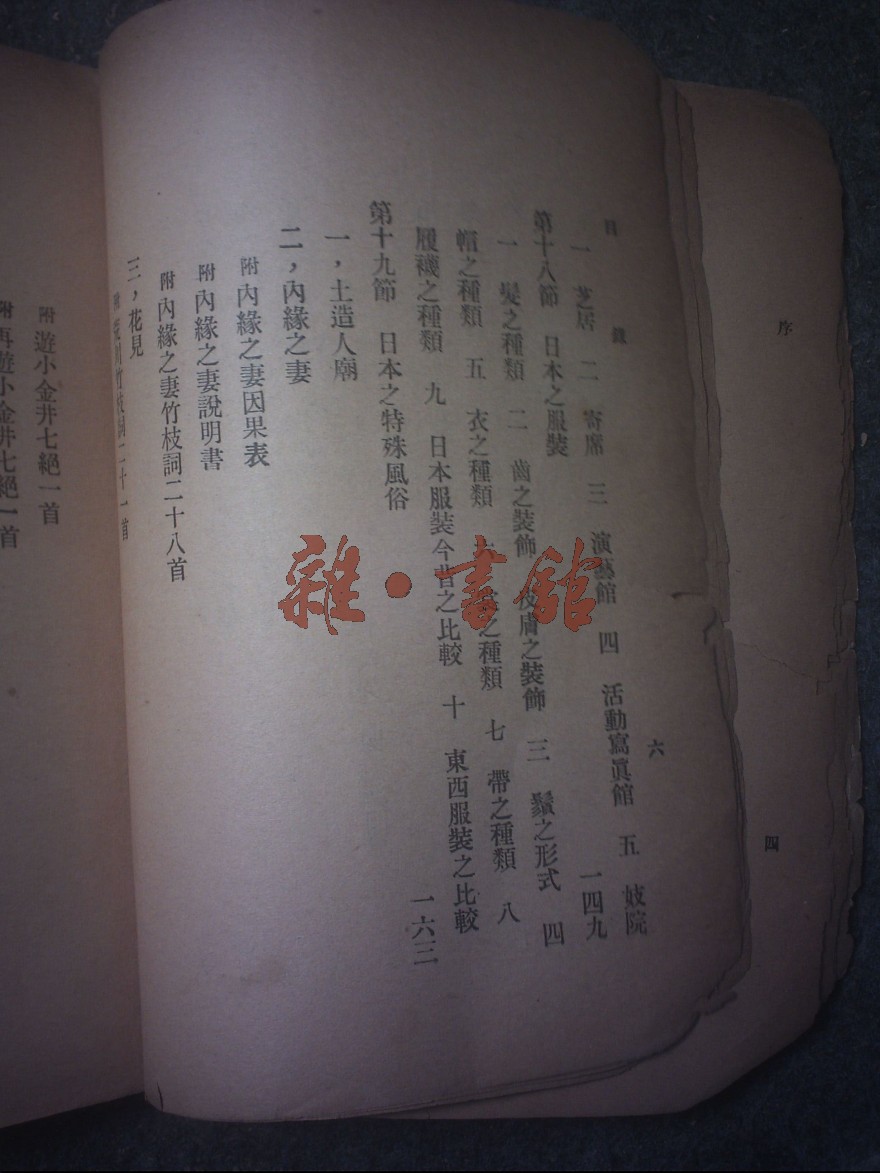 序
四
目錄
六
一 芝居 二 寄席 三 演藝館 四 活動寫眞館 五 妓院
第十八節 日本之服裝 一四九
一 髮之種類 二 齒之裝飾 皮膚之裝飾 三 鬚之形式 四
帽之種類 五 衣之種類 六 之種類 七 帶之種類 八
履襪之種類 九 日本服裝今昔之比較 十 東西服裝之比較
第十九節 日本之特殊風俗 一六三
一，土造人廟
二，內緣之妻
附 內緣之妻因果表
附 內緣之妻說明書
附 內緣之妻竹枝詞二十八首
三，花見
附 川竹枝詞二十一首
附 遊小金井七絕一首
附 再遊小金井七絕一首
雜·書館